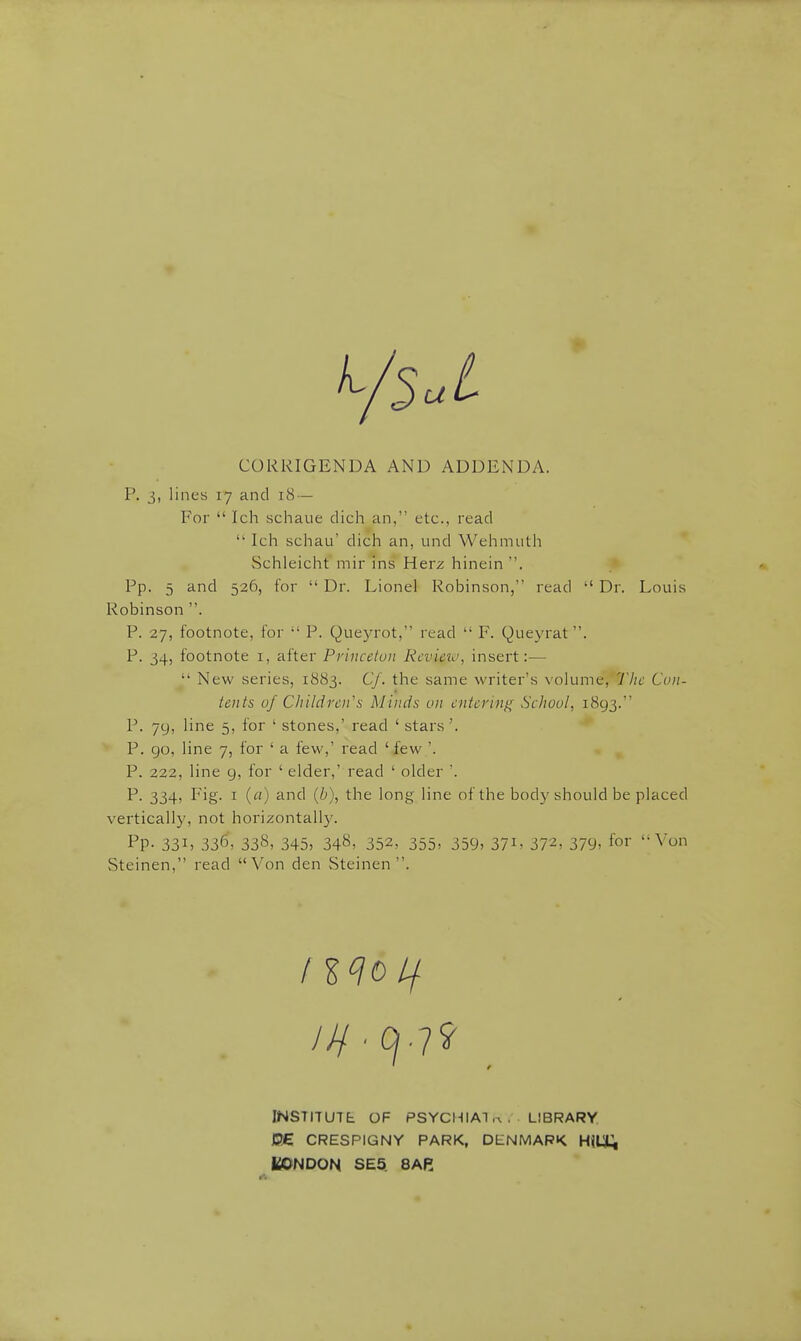 h/Sul
CORRIGENDA AND ADDENDA.
P. 3, lines 17 and 18—
For “ Ich schaue dich an,” etc., read
“ Ich schau’ dich an, und Wehmuth
Schleicht mir ins Herz hinein ”.
Pp. 5 and 526, for “ Dr. Lionel Robinson,” read “ Dr. Louis
Robinson ”.
P. 27, footnote, for “ P. Queyrot,” read “ F. Queyrat ”.
P. 34, footnote 1, after Princeton Review, insert:—
“ New series, 1883. Cf. the same writer’s volume, The Con-
tents of Children’s Minds on entering School, 1893.”
P. 79, line 5, for ‘ stones,’ read ‘ stars ’.
P. 90, line 7, for ‘ a few,’ read ‘ few ’.
P. 222, line 9, for ‘ elder,’ read ‘ older ’.
P. 334, Fig. 1 (a) and (b), the long line of the body should be placed
vertically, not horizontally.
Pp. 331, 336, 338, 345, 348, 352, 355, 359, 371, 372, 379, for “ Von
Steinen,” read “ Von den Steinen ”.
18904
14.9.78
INSTITUTE OF PSYCHIAT LIBRARY
DE CRESPIGNY PARK, DENMARK HILL,
LONDON SE5 8AF